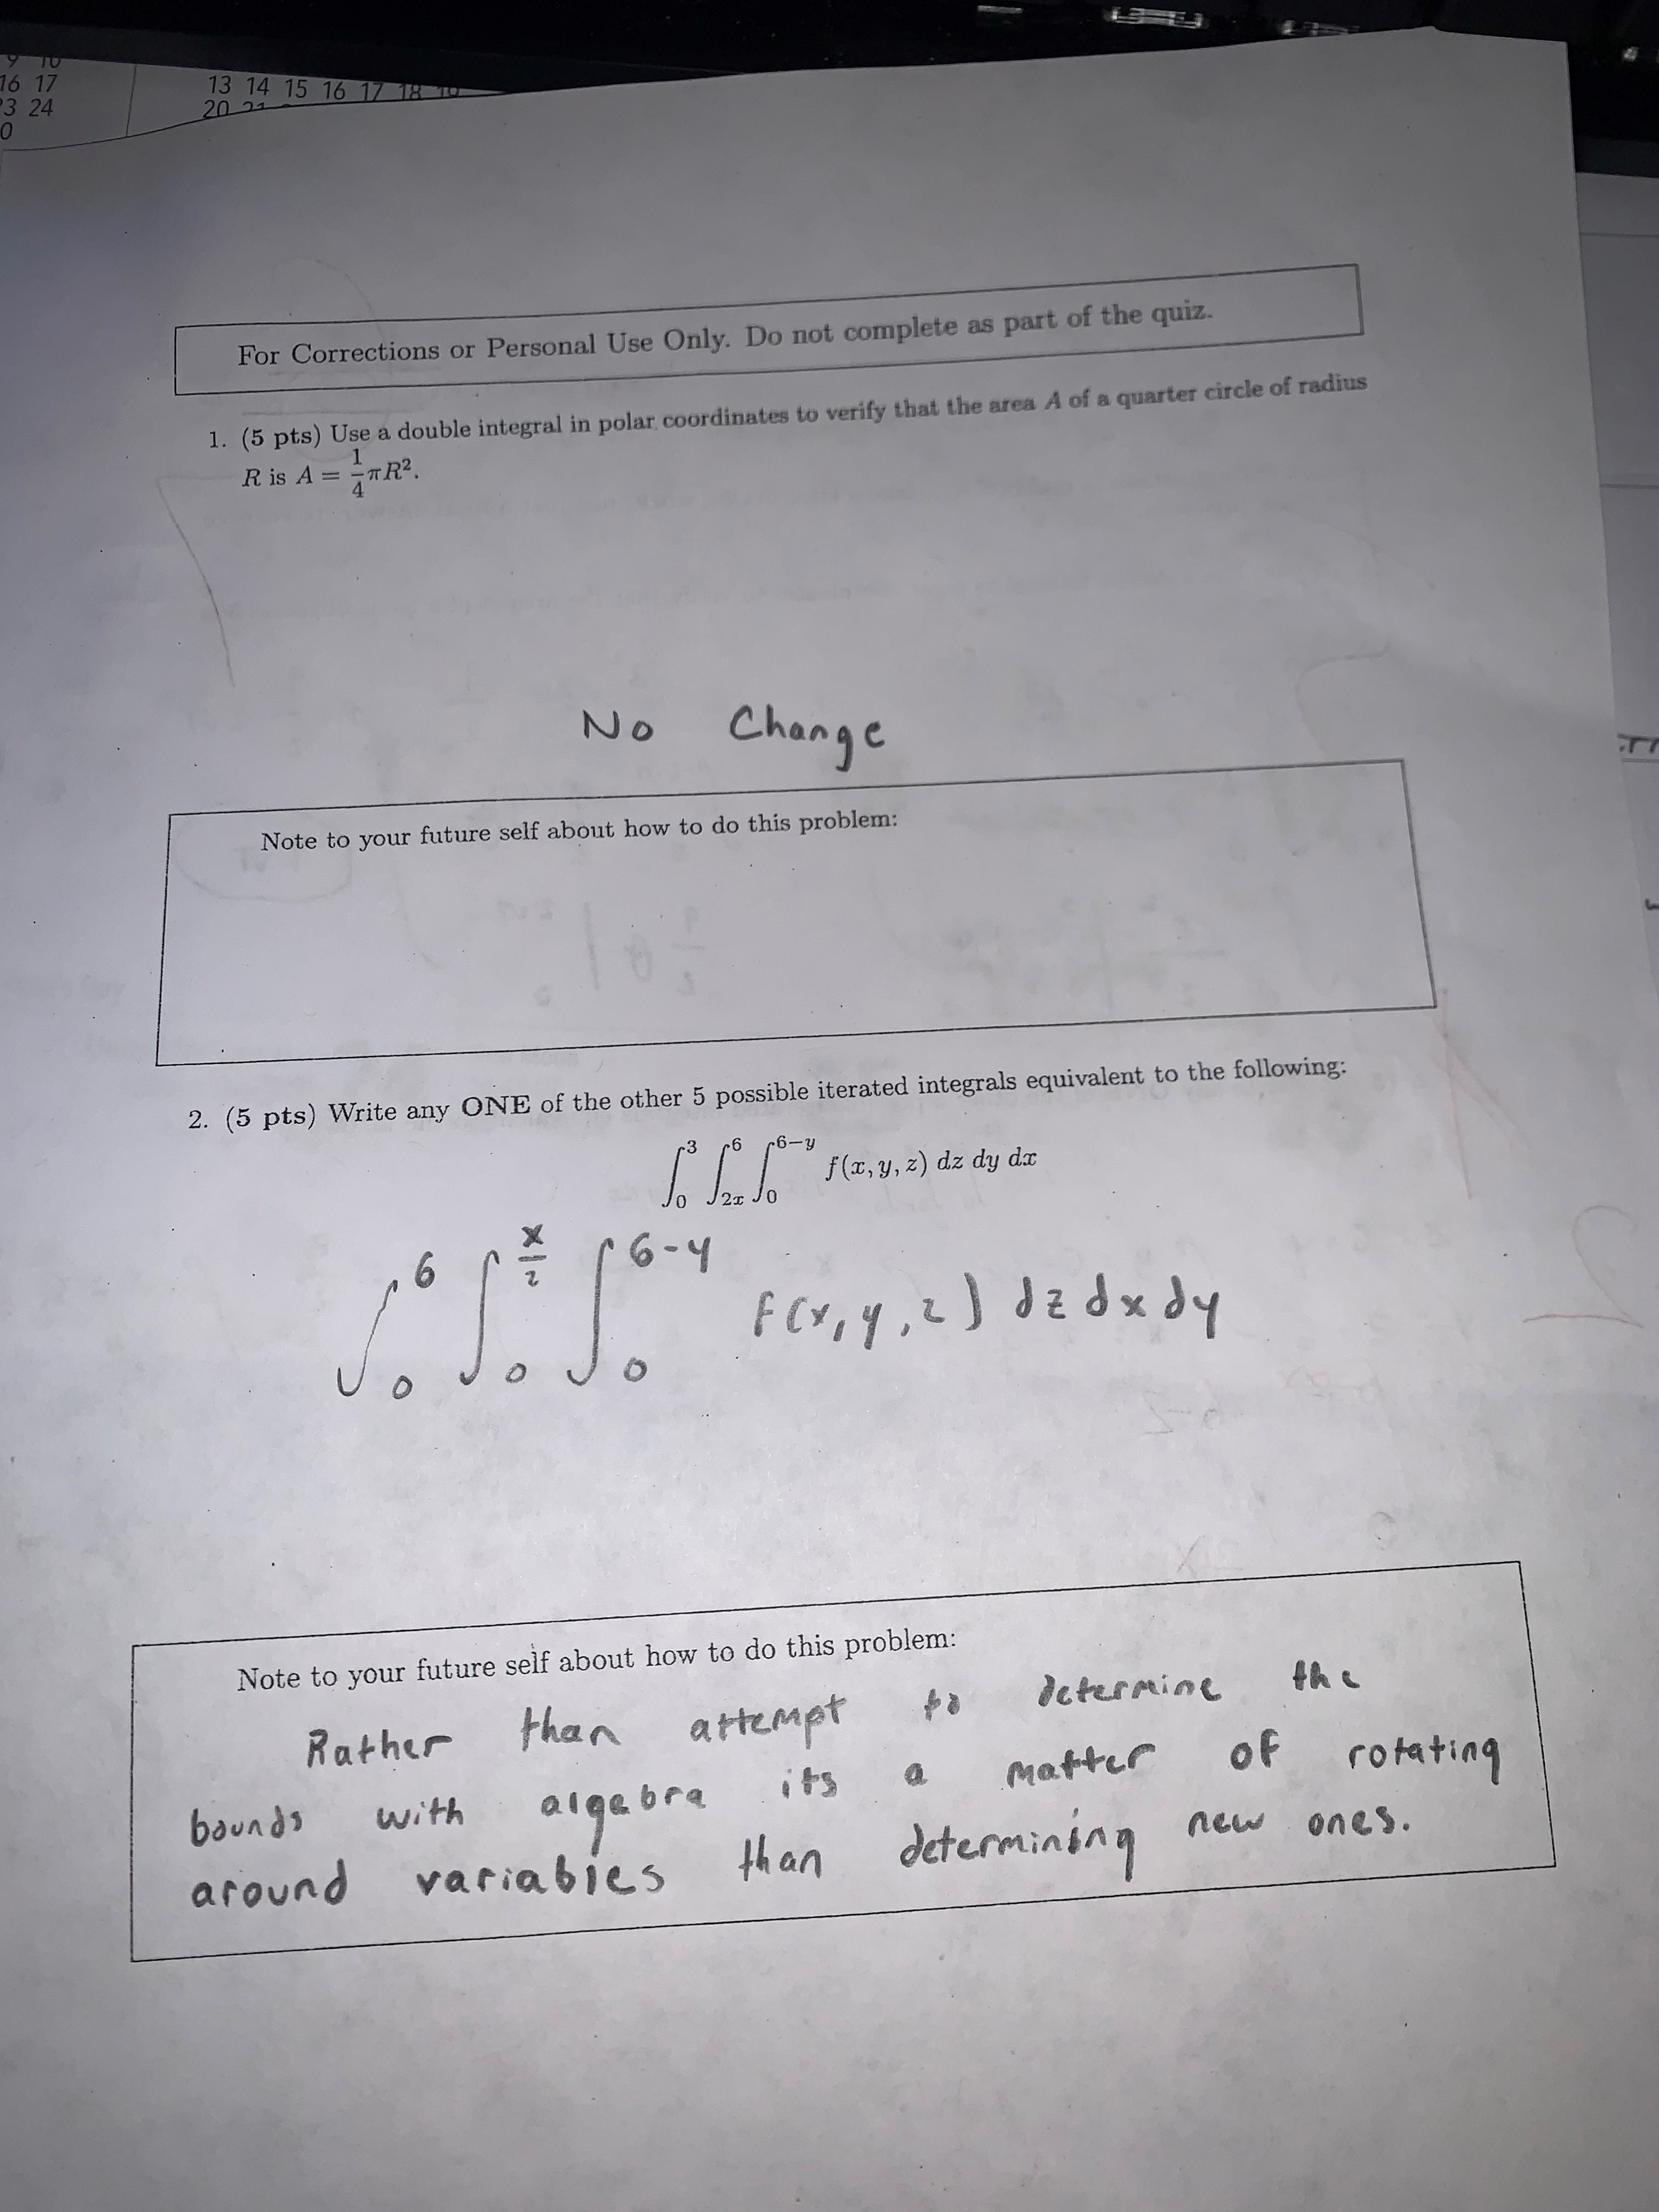 9 10
16 17
23 24
0
13 14 15 16 17 18 19
20 21
For Corrections or Personal Use Only. Do not complete as part of the quiz.
1. (5 pts) Use a double integral in polar coordinates to verify that the area A of a quarter circle of radius
R is A = 1/4 πR².
No Change
Note to your future self about how to do this problem:
2. (5 pts) Write any ONE of the other 5 possible iterated integrals equivalent to the following:
∫₀³ ∫₂ₓ⁶ ∫₀⁶⁻ʸ f(x, y, z) dz dy dx
∫₀⁶ ∫₀^(x/2) ∫₀^(6-y) f(x, y, z) dz dx dy
Note to your future self about how to do this problem:
Rather than attempt to determine the
bounds with algebra its a matter of rotating
around variables than determining new ones.